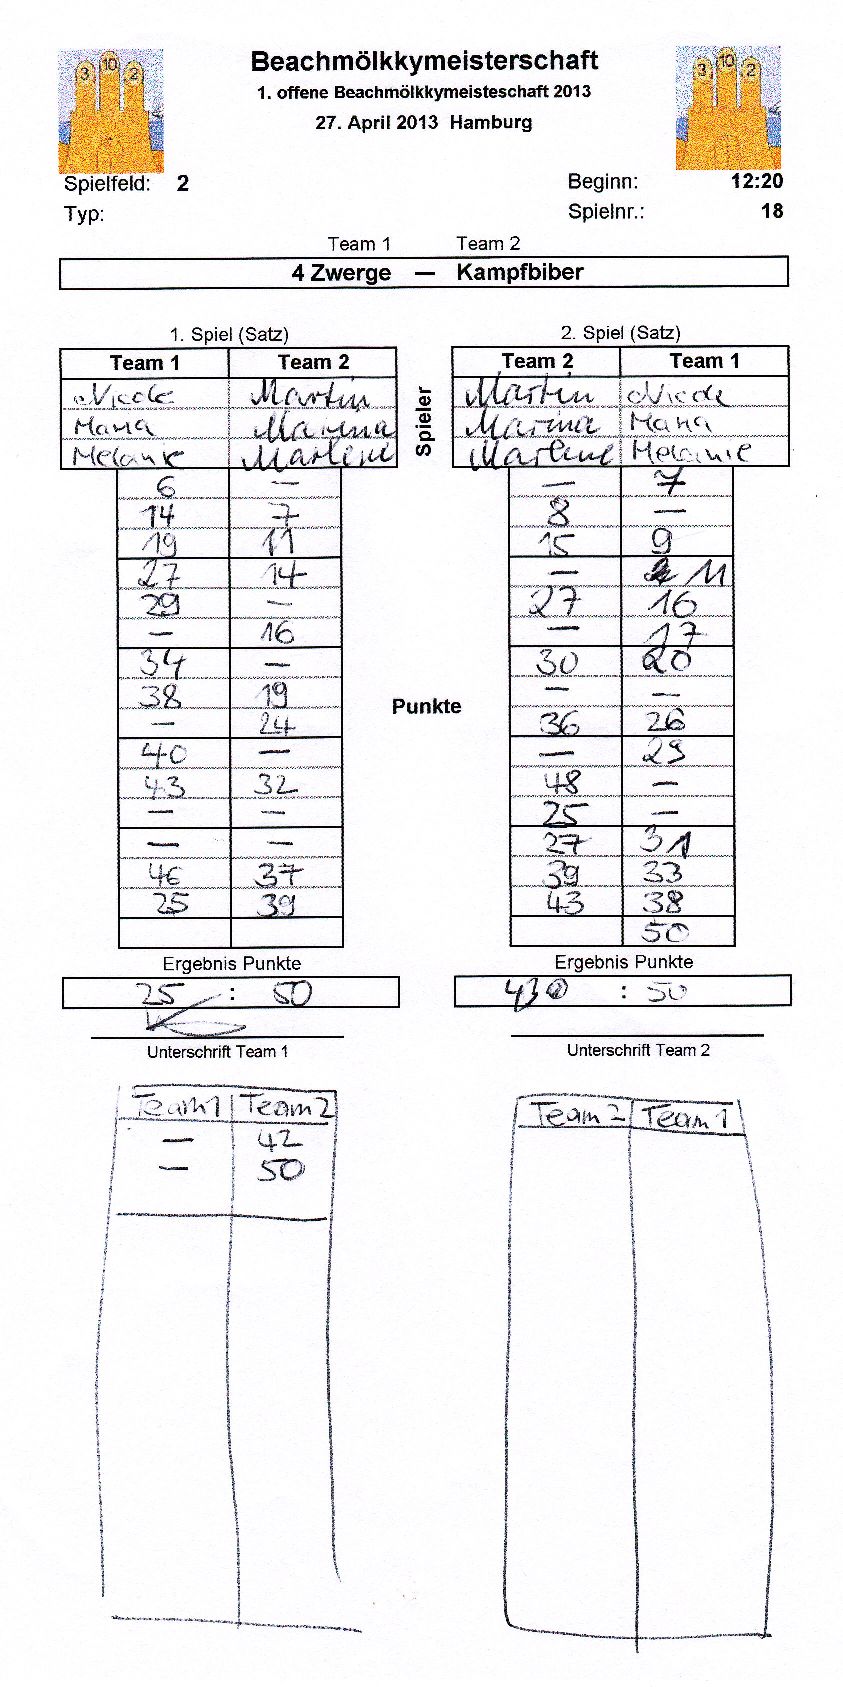 3 10 2
3 10 2
Beachmölkkymeisterschaft
1. offene Beachmölkkymeisteschaft 2013
27. April 2013 Hamburg
Spielfeld: 2
Beginn: 12:20
Typ:
Spielnr.: 18
Team 1 Team 2
4 Zwerge — Kampfbiber
1. Spiel (Satz)
Team 1 Team 2
Nicole Martin
Mana Marina
Melanie Marlene
6 —
14 7
19 11
27 14
29 —
— 16
34 —
38 19
— 24
40 —
43 32
— —
— —
46 37
25 39
Ergebnis Punkte
25 : 50
Unterschrift Team 1
Spieler
Punkte
2. Spiel (Satz)
Team 2 Team 1
Martin Nicole
Marina Mana
Marlene Melanie
— 7
8 —
15 9
— 11
27 16
— 17
30 20
— —
36 26
— 29
48 —
25 —
27 31
39 33
43 38
50
Ergebnis Punkte
43 : 50
Unterschrift Team 2
Team 1 Team 2
— 42
— 50
Team 2 Team 1